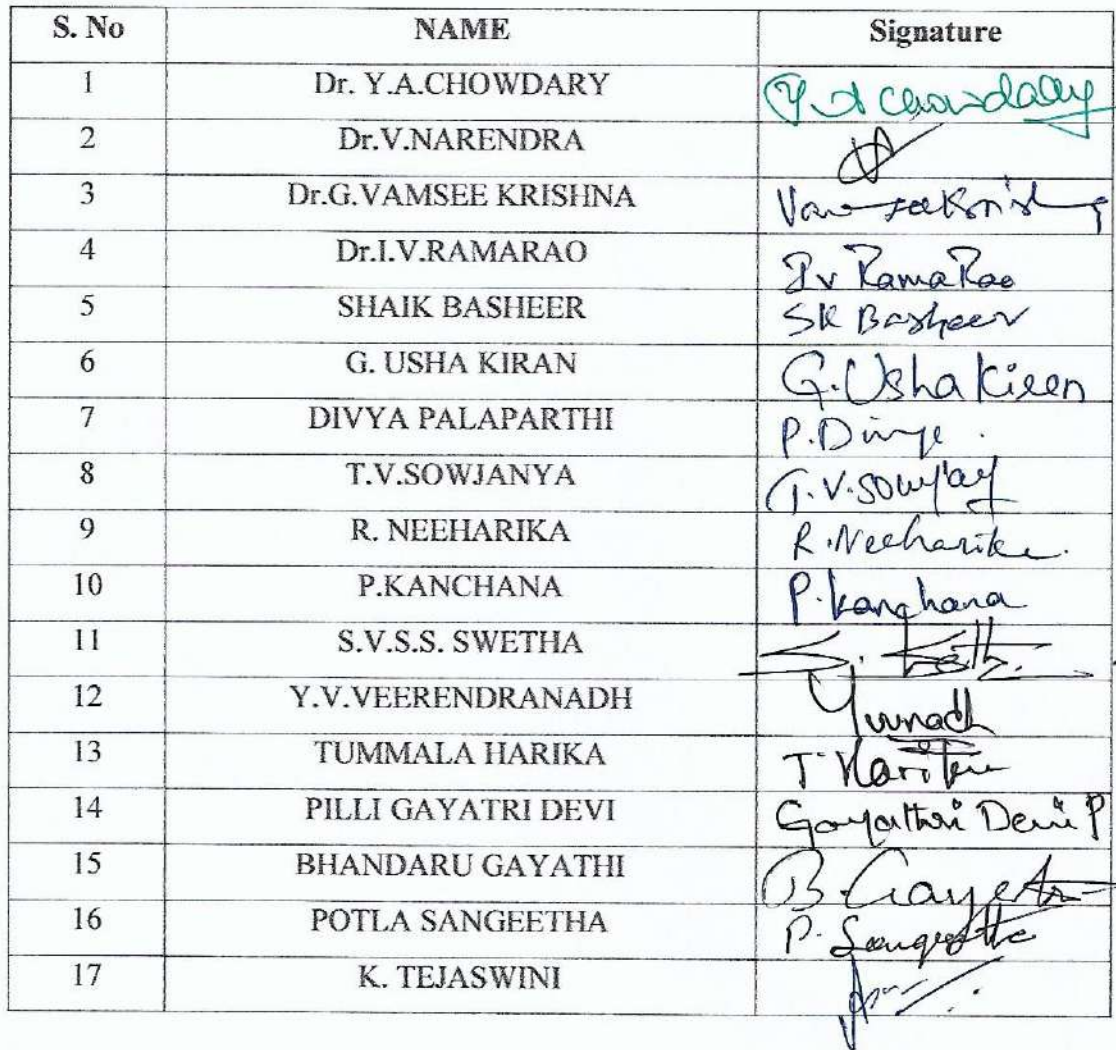 S. No NAME Signature
1 Dr. Y.A.CHOWDARY Y. A Chowdary
2 Dr.V.NARENDRA
3 Dr.G.VAMSEE KRISHNA Vamsee Krishna
4 Dr.I.V.RAMARAO I v Rama Rao
5 SHAIK BASHEER SK Basheer
6 G. USHA KIRAN G. Usha Kiran
7 DIVYA PALAPARTHI P. Divya
8 T.V.SOWJANYA T. V. Sowjay
9 R. NEEHARIKA R. Neeharika
10 P.KANCHANA P. Kanchana
11 S.V.S.S. SWETHA S.
12 Y.V.VEERENDRANADH Yvvnadh
13 TUMMALA HARIKA T Harika
14 PILLI GAYATRI DEVI Gayathri Devi P
15 BHANDARU GAYATHI B. Gayatri
16 POTLA SANGEETHA P. Sangeetha
17 K. TEJASWINI